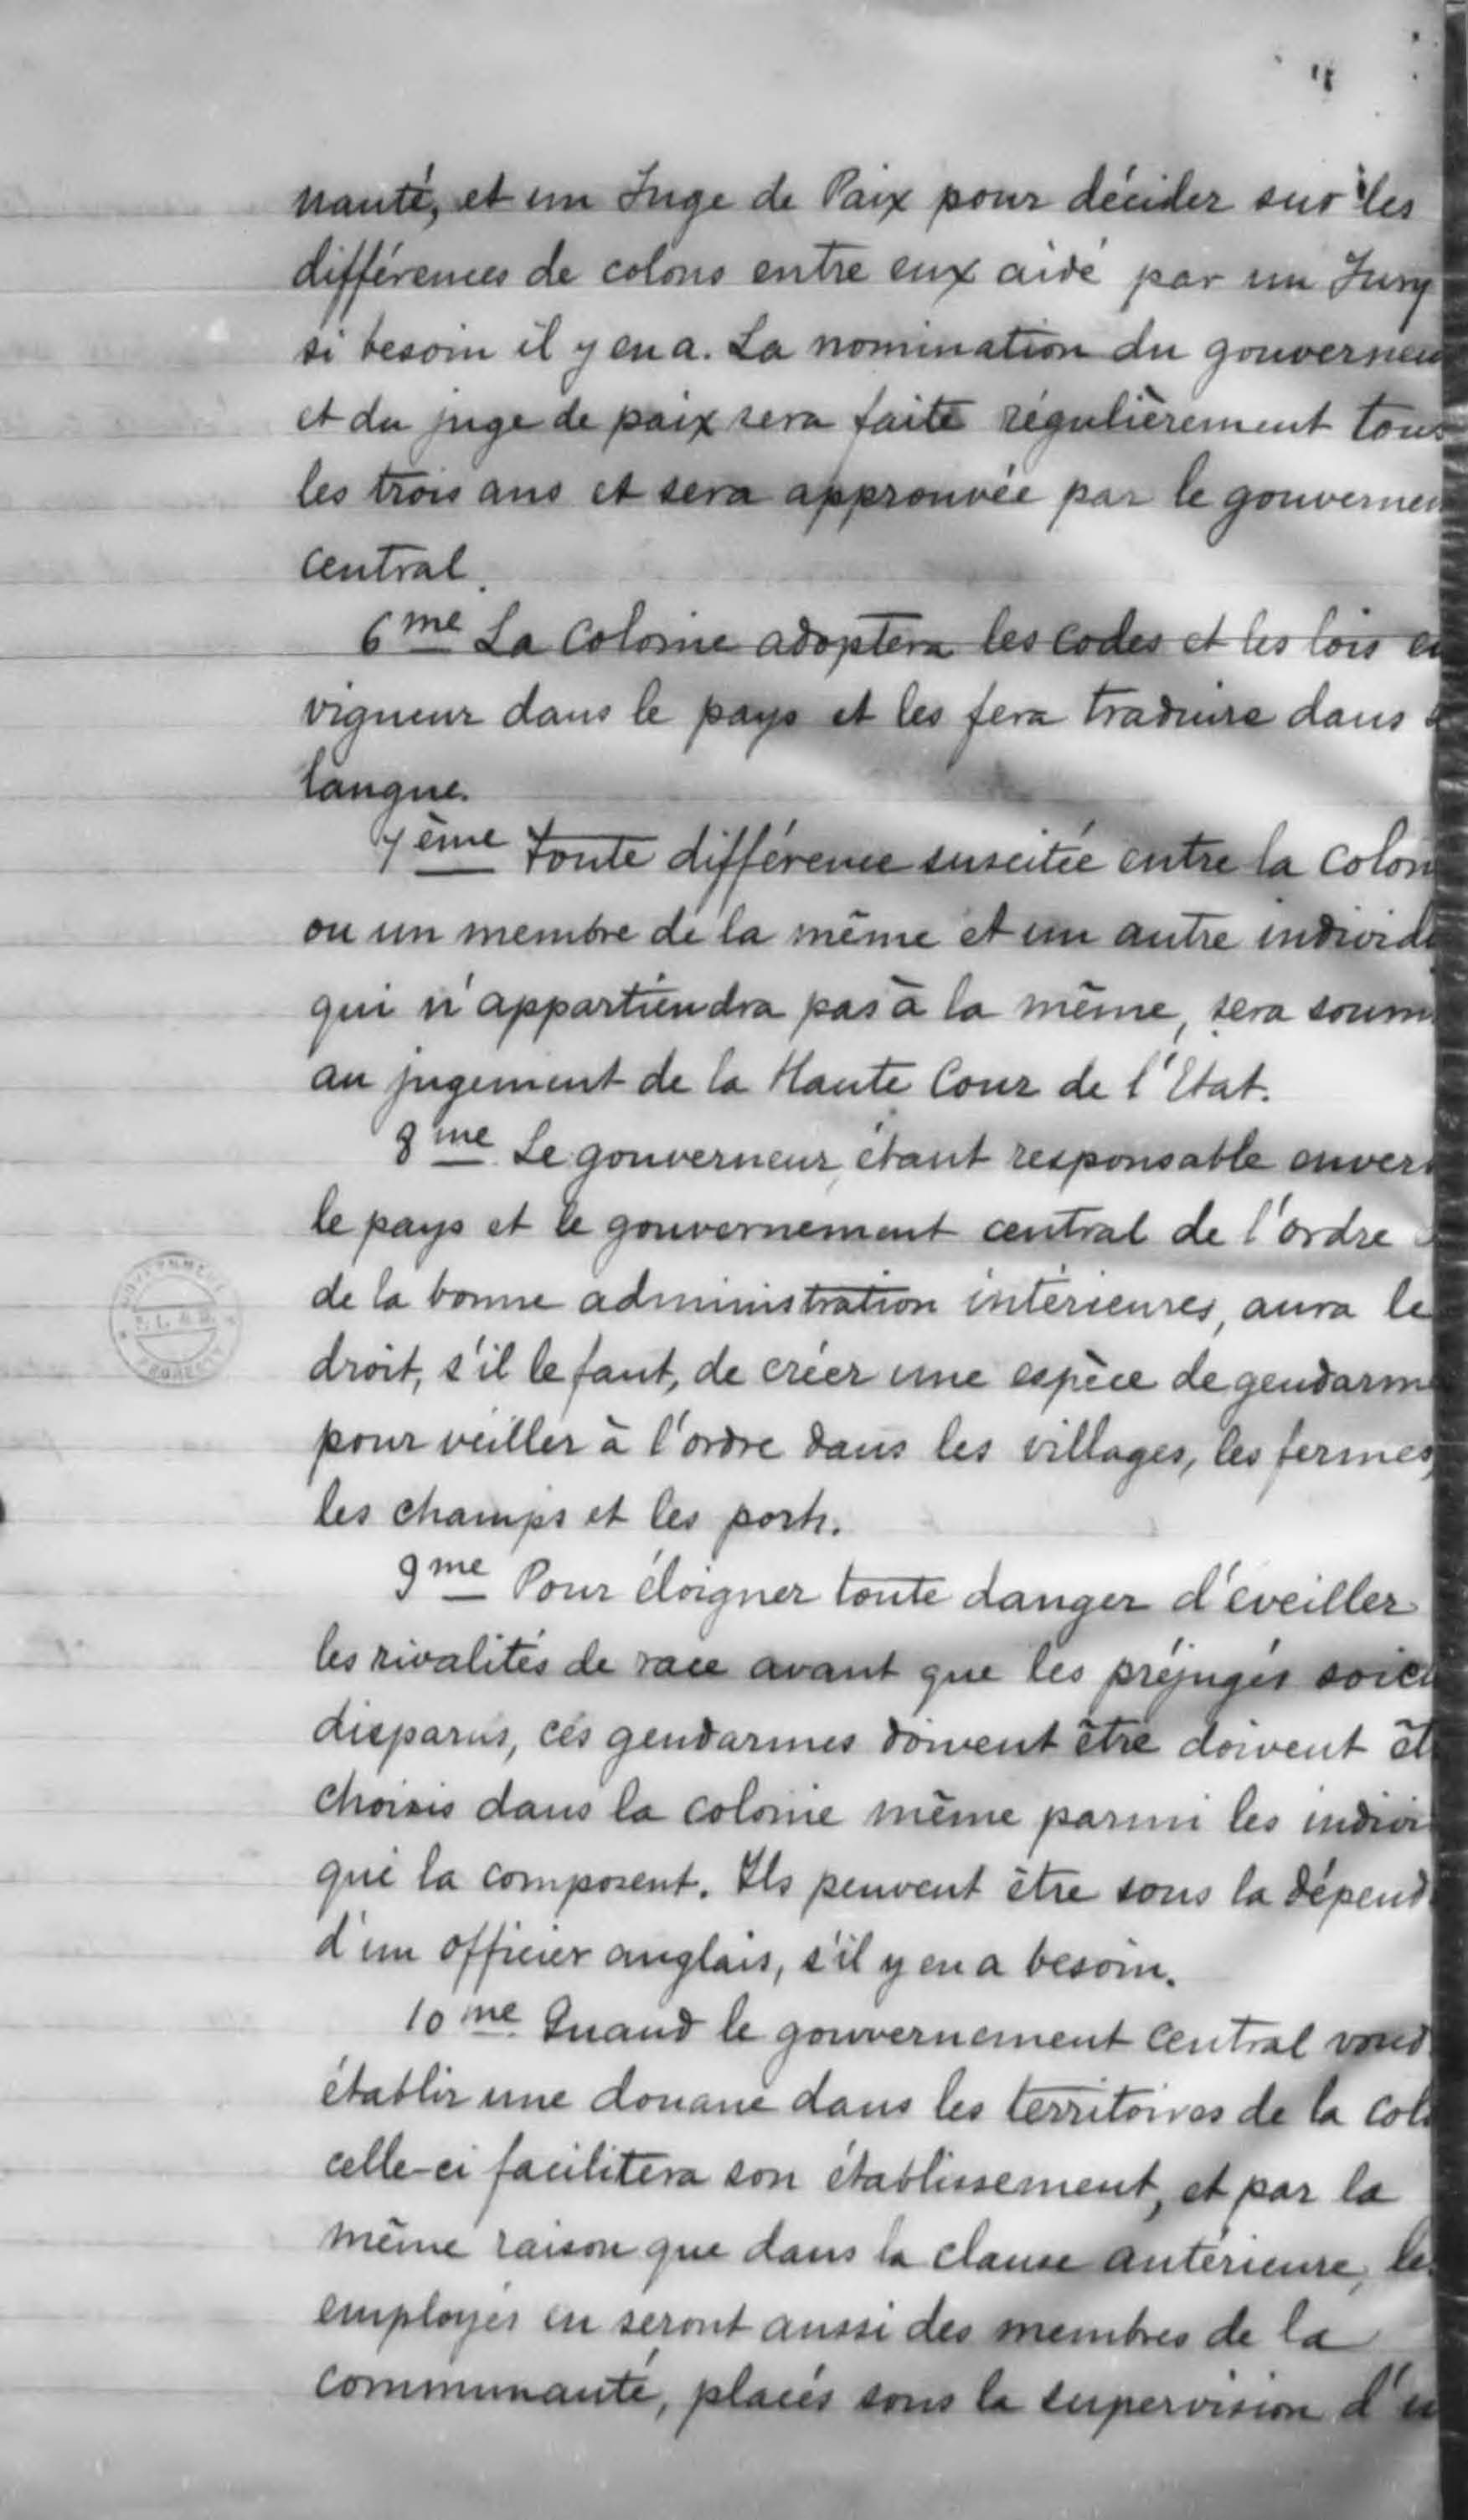 nauté, et un Juge de Paix pour décider sur les
différences de colons entre eux aidé par un Jury
si besoin il y en a. La nomination du gouverneu
et du juge de paix sera faite régulièrement tous
les trois ans et sera approuvée par le gouvernem
central.
6me La Colonie adoptera les codes et les lois en
vigueur dans le pays et les fera traduire dans
langue.
7ème Toute différence suscitée entre la colon
ou un membre de la même et un autre individu
qui n'appartiendra pas à la même, sera soum
au jugement de la Haute Cour de l'Etat.
8me Le gouverneur, étant responsable envers
le pays et le gouvernement central de l'ordre
de la bonne administration intérieures, aura le
droit, s'il le faut, de créer une espèce de gendarme
pour veiller à l'ordre dans les villages, les fermes,
les champs et les ports.
9me Pour éloigner toute danger d'éveiller
les rivalités de race avant que les préjugés soien
disparus, ces gendarmes doivent être doivent êt
choisis dans la colonie même parmi les indivi
qui la composent. Ils peuvent être sous la dépend
d'un officier anglais, s'il y en a besoin.
10me Quand le gouvernement central voud
établir une douane dans les territoires de la col
celle-ci facilitera son établissement, et par la
même raison que dans la clause antérieure, les
employés en seront aussi des membres de la
communauté, placés sous la supervision d'u